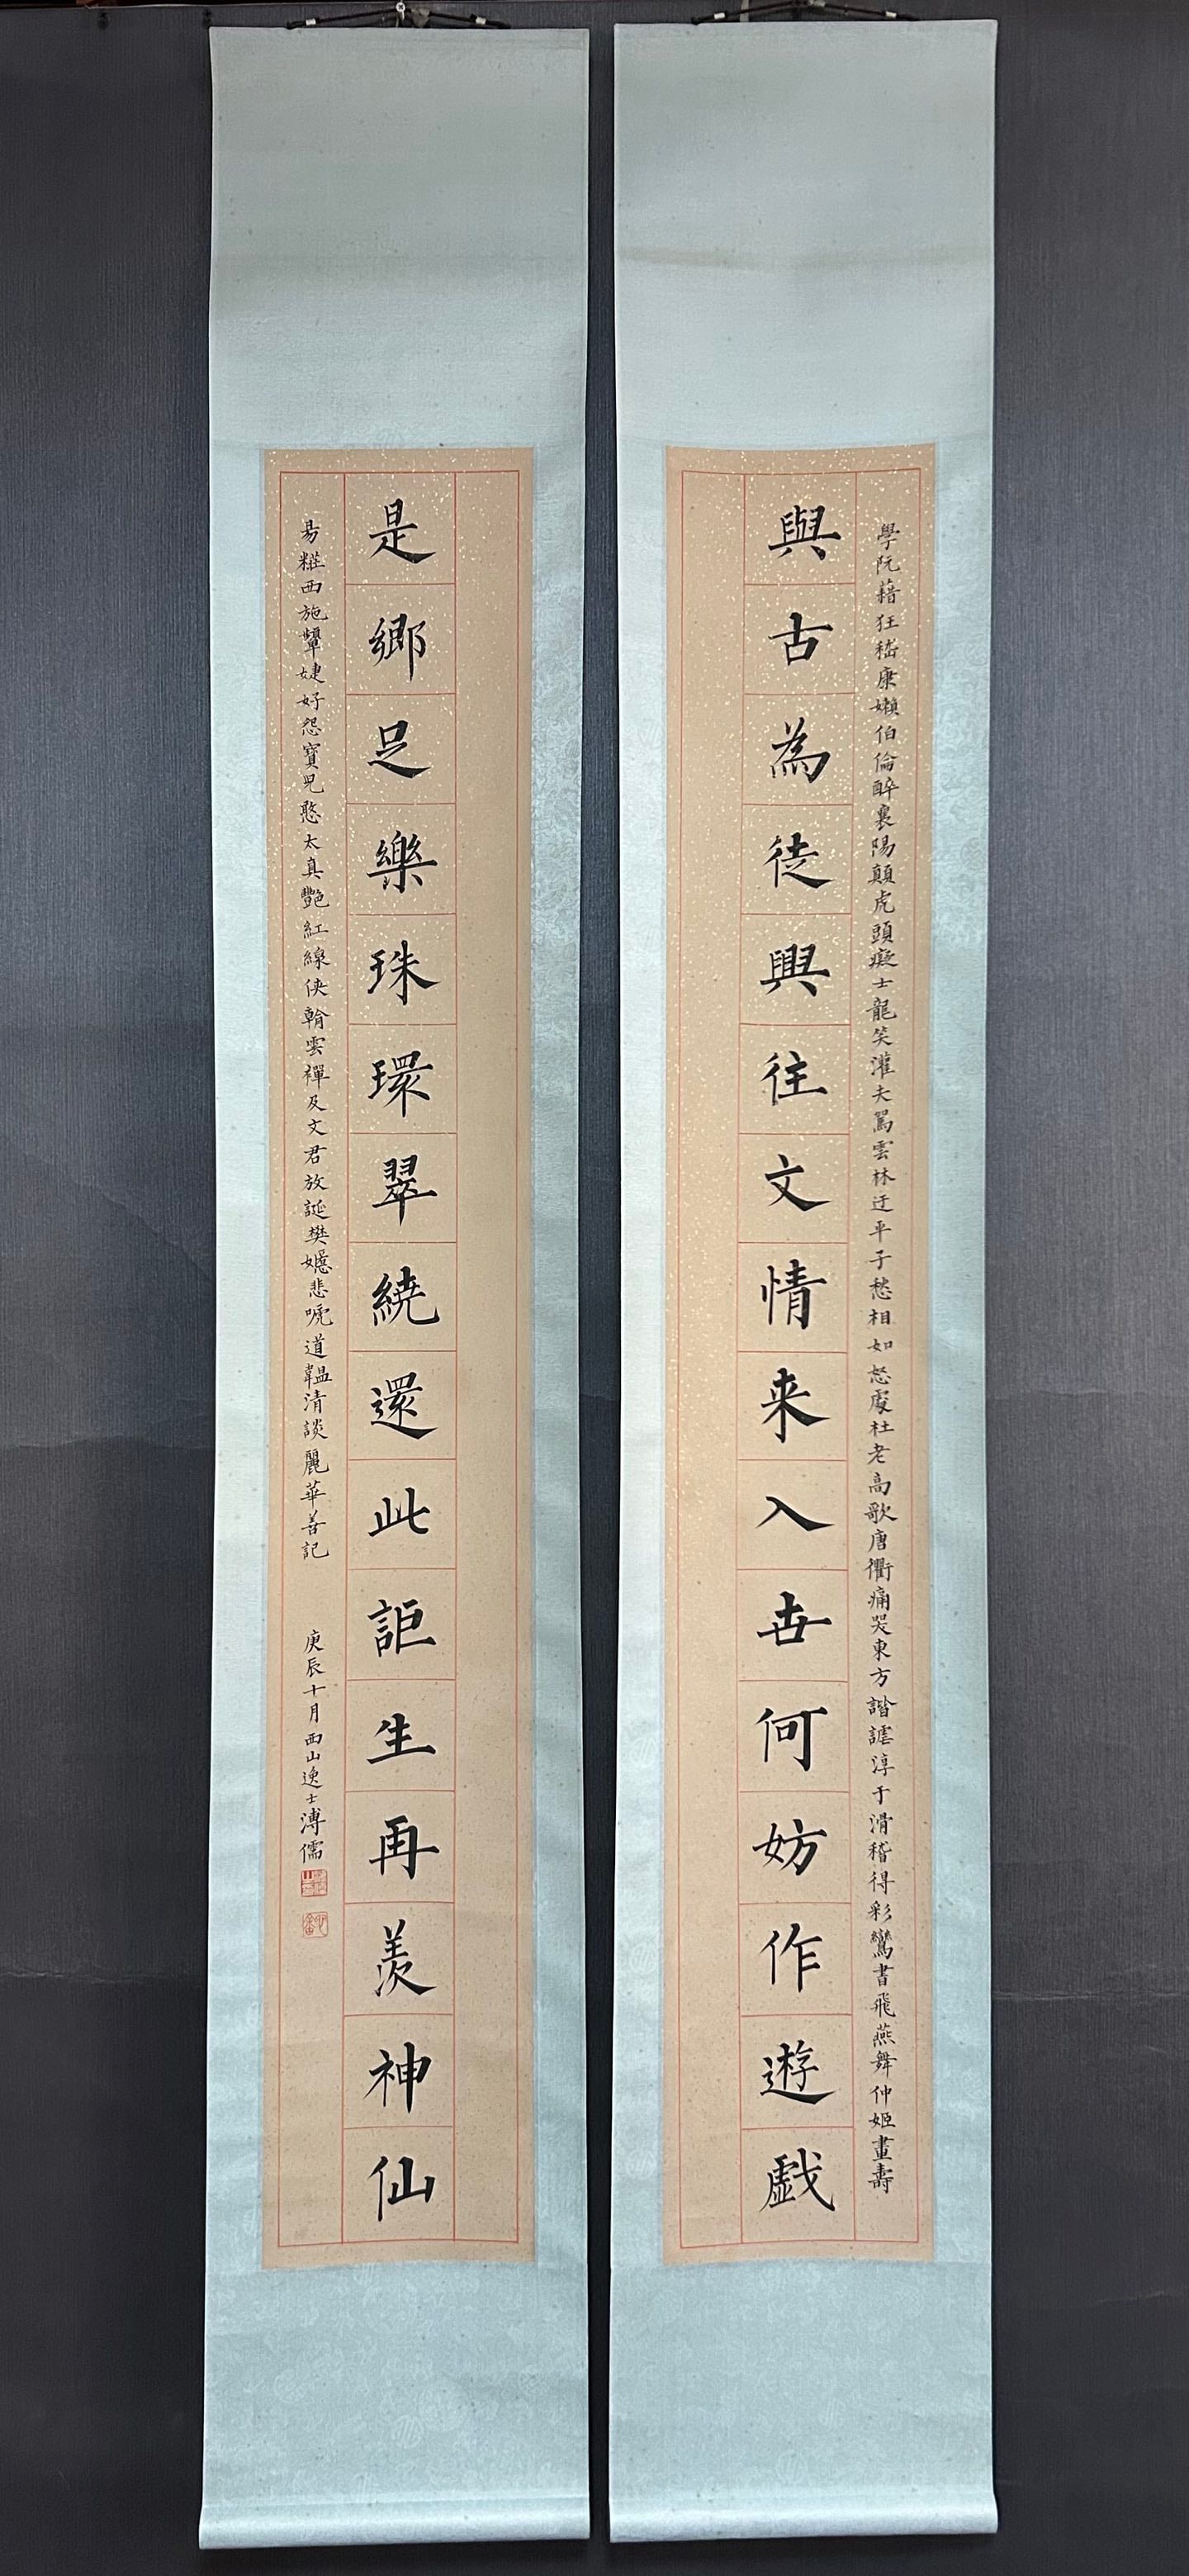 學阮藉狂嵇康嬾伯倫醉襄陽顛虎頭癡士龍笑灌夫罵雲林迂平子愁相如怒處杜老高歌唐衢痛哭東方諧謔淳于滑稽得彩鸞書飛燕舞仲姬畫壽
與古為徒興往文情来入世何妨作遊戯
是鄉足樂珠環翠繞還此詎生再羨神仙
昜糚西施顰婕妤怨寶兒憨太真艷紅線俠朝雲禪及文君放誕樊嬺悲唬道韞清談麗華善記
庚辰十月西山逸士溥儒